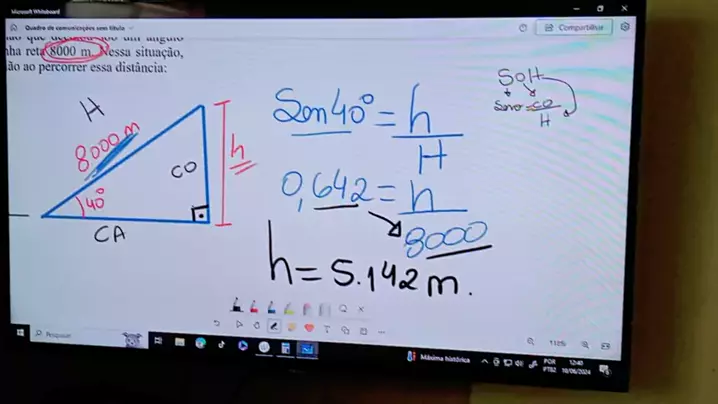 Microsoft Whiteboard
Quadro de comunicações sem título
Compartilhar
um ângulo
nha reta 8000 m. Nessa situação,
ão ao percorrer essa distância:
H
8000 m
40°
CO
h
CA
Sen 40° = h
H
0,642 = h
8000
h = 5.142 m.
SOH
Seno = CO
H
Pesquisar
Máxima histórica
POR
PTB2
12:40
18/06/2024